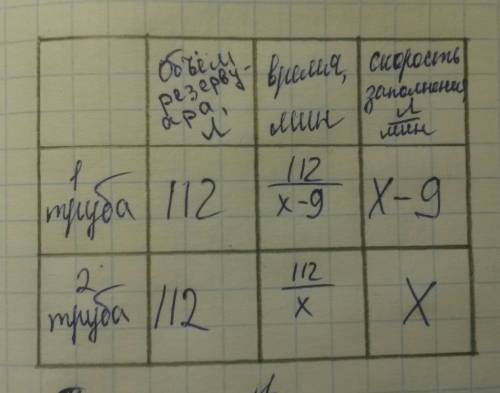 Объём
резерву-
ара,
л
время,
мин
скорость
заполнения
л
мин
1
труба
112
112
х-9
х-9
2
труба
112
112
х
х